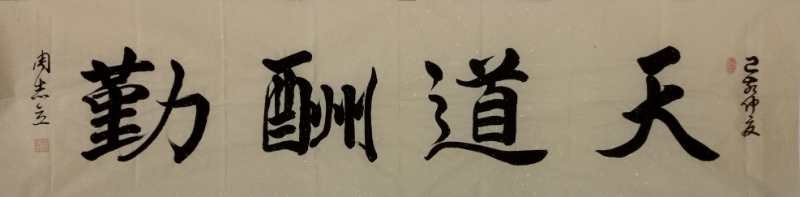 己亥仲夏
天道酬勤
周志立